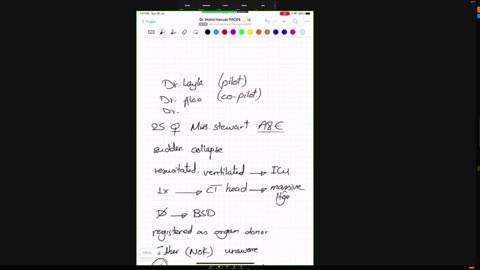 Dr. Mohd Hassan PACES
Pages
Dr. Layla (pilot)
Dr. Alaa (co-pilot)
Dr.
25 ♀ Miss. Stewart A&E
sudden collapse
resusitated, ventilated → ICU
Ix → CT head → massive Hge
D → BSD
registered as organ donor
(NOK) unaware